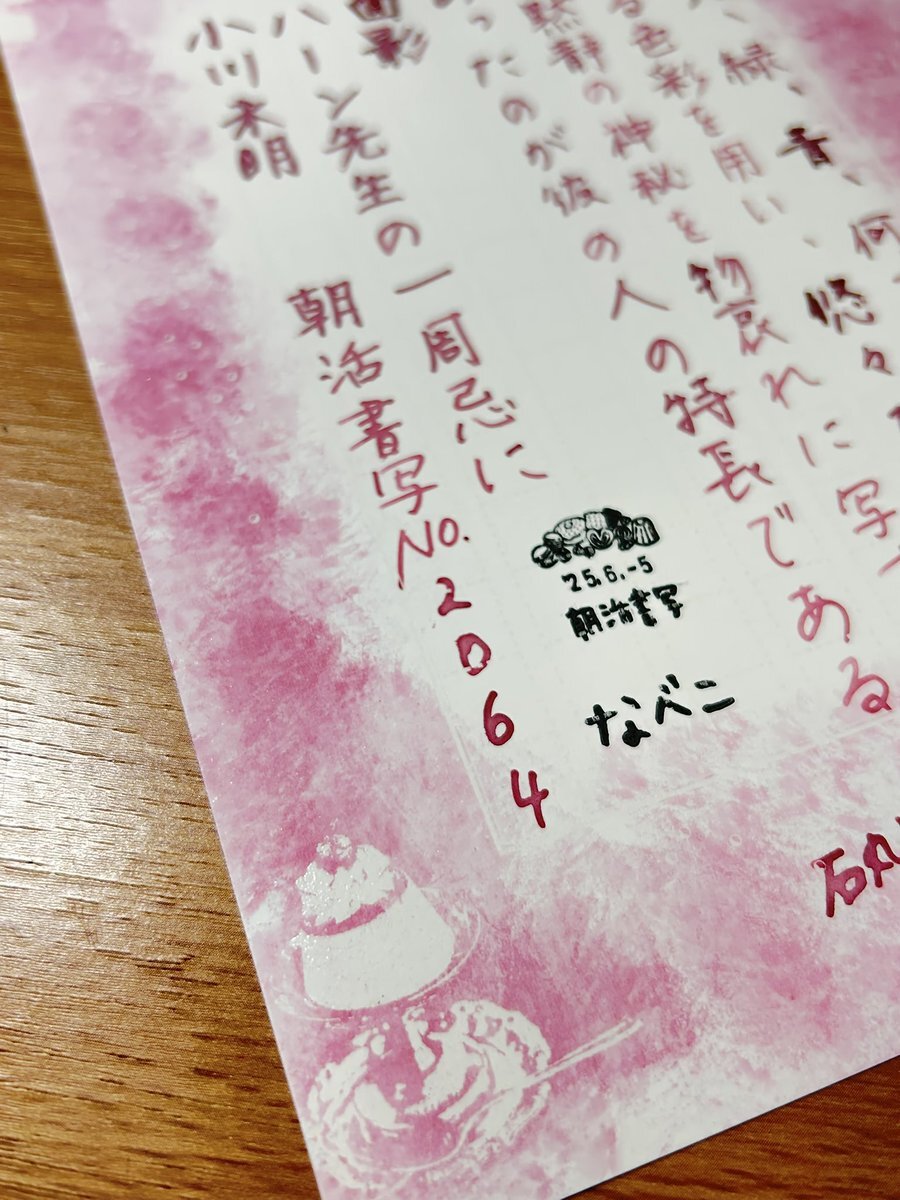 、緑、青、何
る色彩を用い、悠々
黙静の神秘を物哀れに写
ったのが彼の人の特長である
面影
ハーン先生の一周忌に
小川未明 朝活書写No.2064
'25.6.-5
朝活書写
なべこ